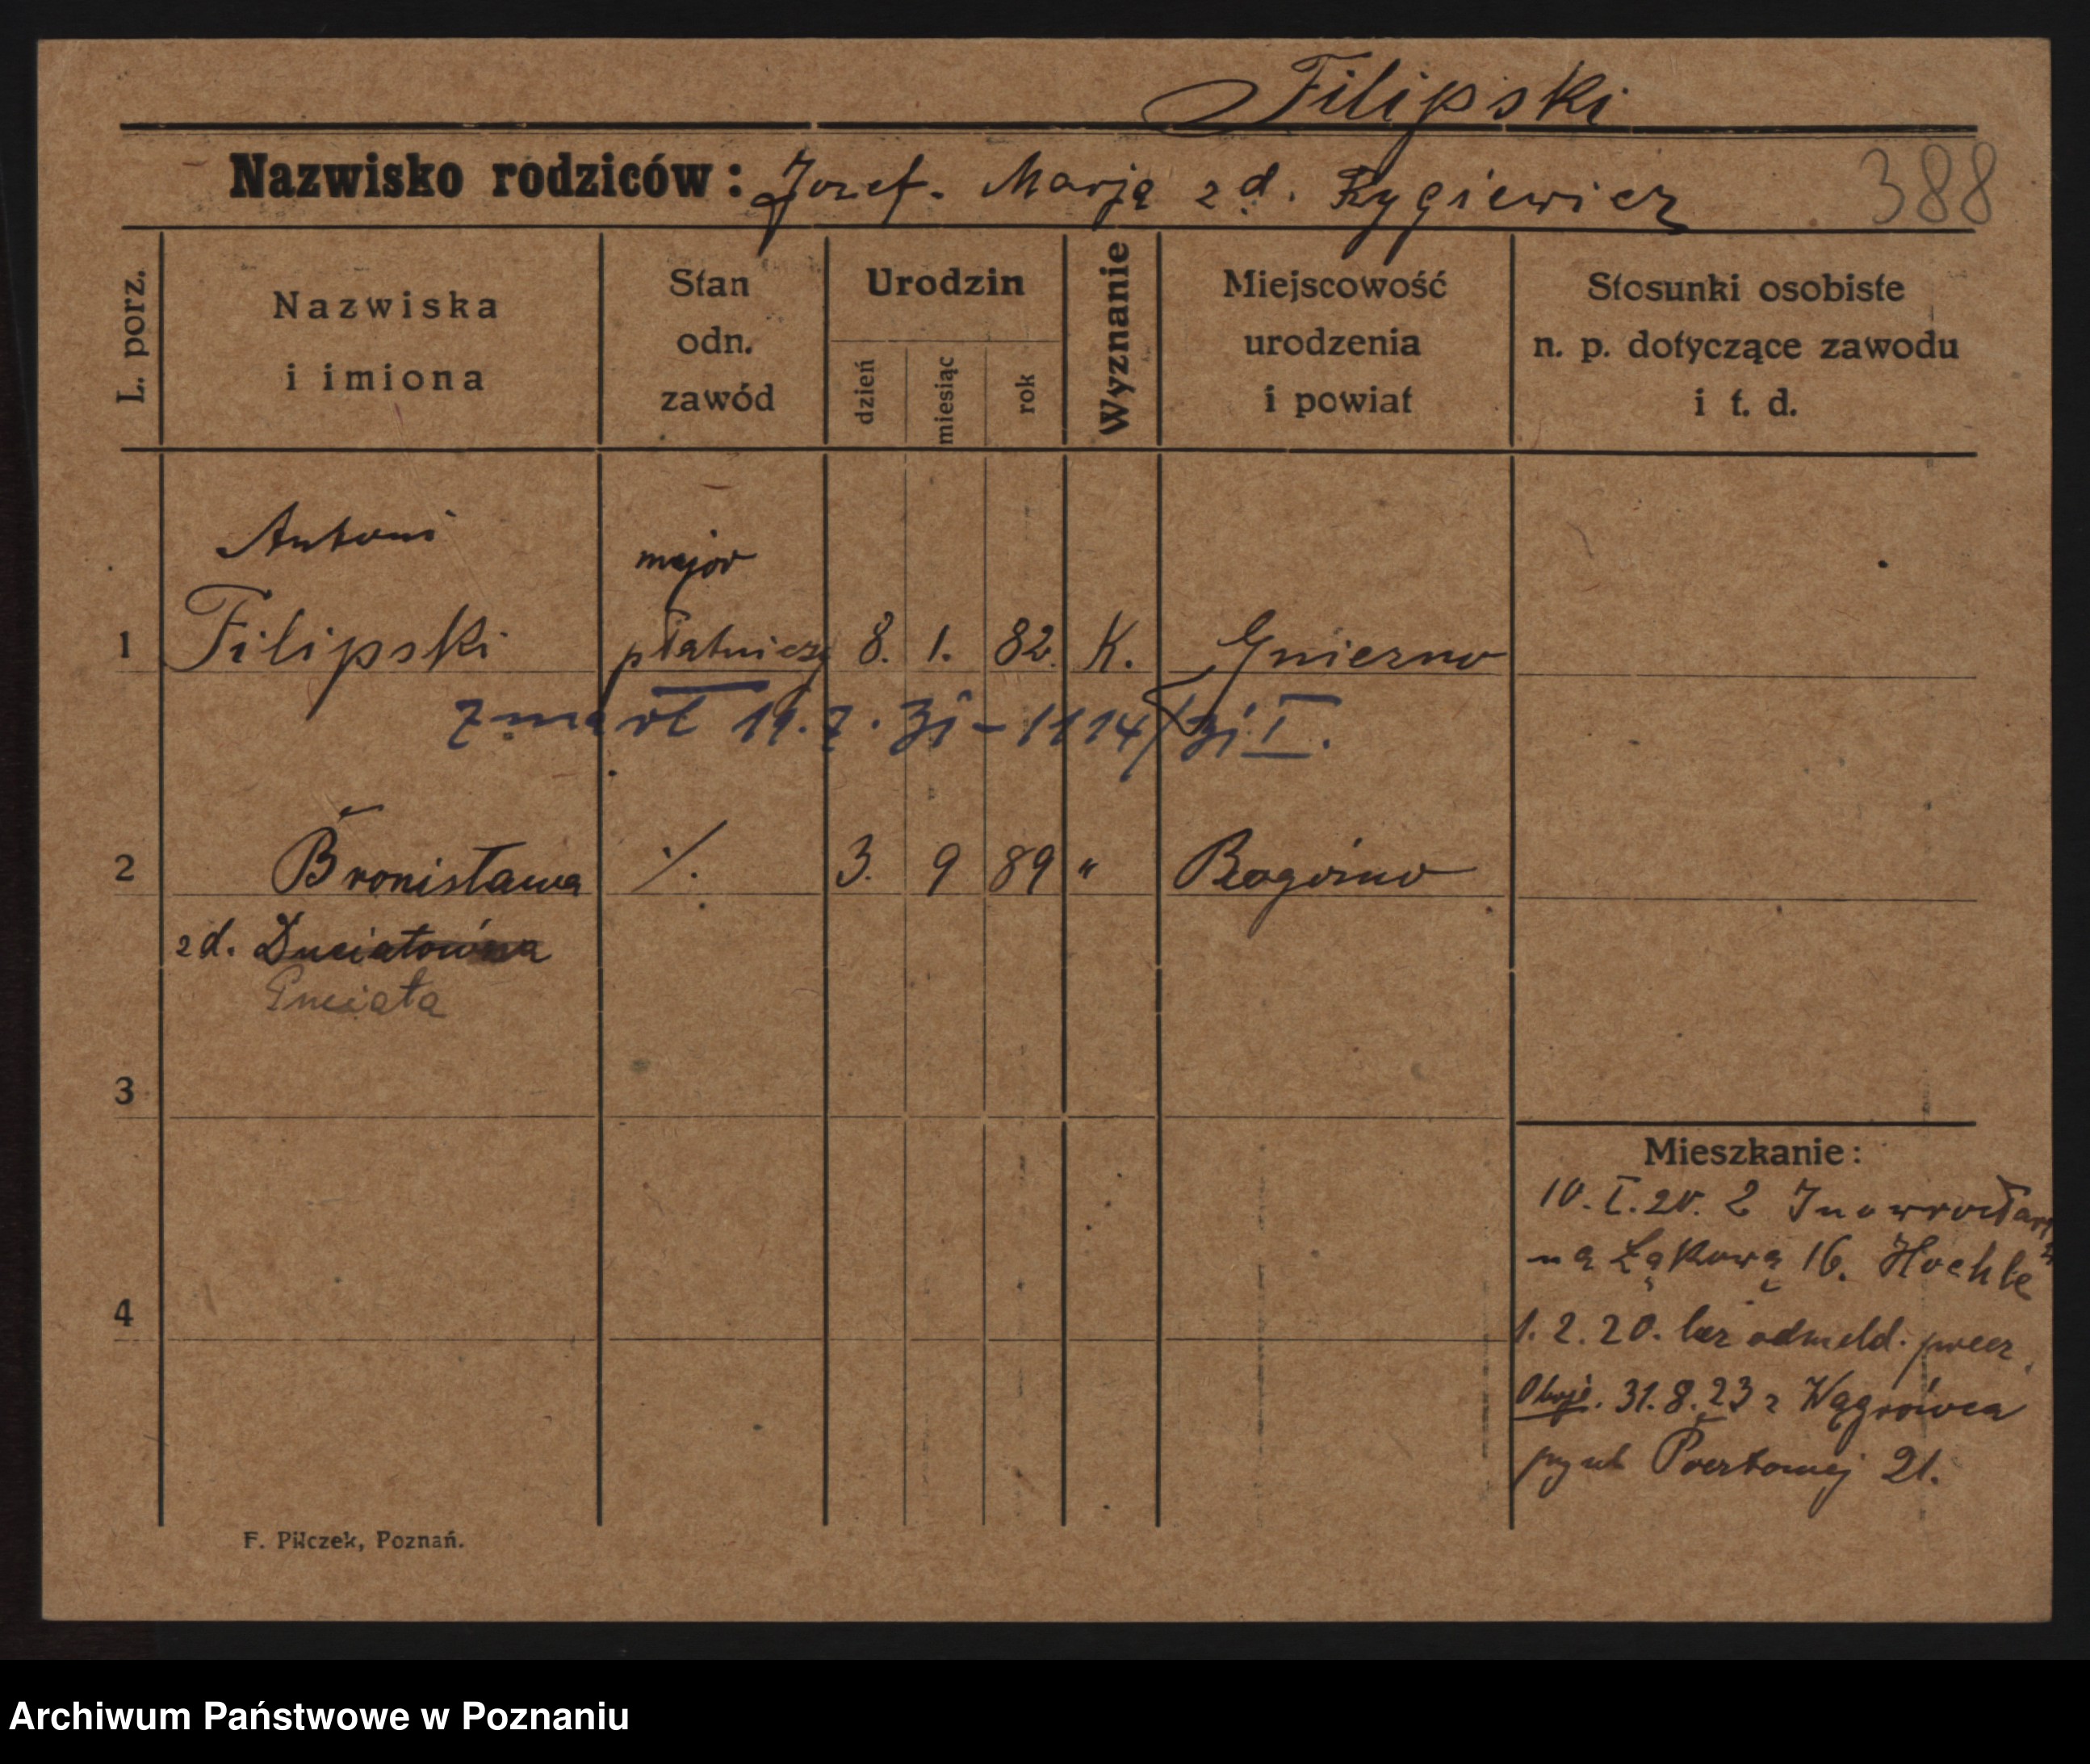 Filipski
Nazwisko rodziców: Jozef. Marja zd. Rygiewicz
388
L. porz.
Nazwiska
i imiona
Stan
odn.
zawód
Urodzin
dzień
miesiąc
rok
Wyznanie
Miejscowość
urodzenia
i powiat
Stosunki osobiste
n. p. dotyczące zawodu
i t. d.
Antoni
major
1 Filipski płatniczy 8. 1. 82. K. Gniezno
zmarł 19.7.31 - 1114/31 I.
2 Bronisława ./. 3. 9 89 " Rogóźno
zd.
Pneiata
3
4
Mieszkanie:
10. I. 20. z Inowrocławia
na Łąkową 16.
1. 2. 20. bez odmeld.
31.8.23 z Wągrówca
przy ul. Pocztowej 21.
F. Pilczek, Poznań.
Archiwum Państwowe w Poznaniu